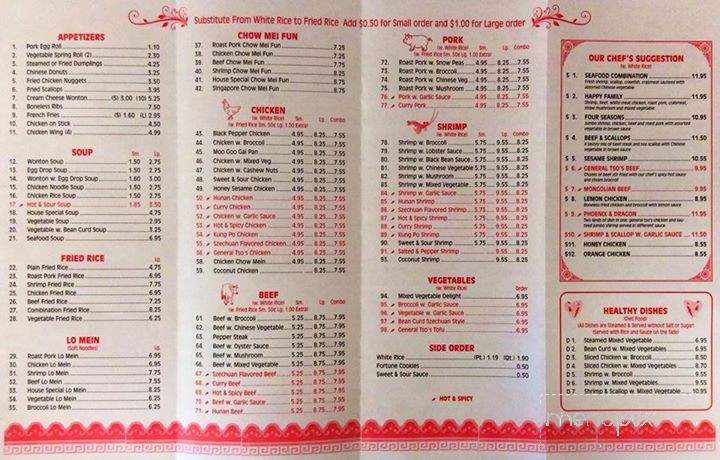 Substitute From White Rice to Fried Rice Add $0.50 for Small order and $1.00 for Large order
APPETIZERS
1. Pork Egg Roll 1.10
2. Vegetable Spring Roll (2) 2.30
3. Steamed or Fried Dumplings 4.25
4. Chinese Donuts 3.25
5. Fried Chicken Nuggets 3.50
6. Fried Scallops 3.95
7. Cream Cheese Wonton (5) 3.00 (10) 5.25
8. Boneless Ribs 7.50
9. French Fries (S) 1.60 (L) 2.95
10. Chicken on Stick 4.50
11. Chicken Wing (4) 4.99
SOUP
Sm. Lg.
12. Wonton Soup 1.50 2.75
13. Egg Drop Soup 1.50 2.75
14. Wonton w. Egg Drop Soup 1.60 3.00
15. Chicken Noodle Soup 1.50 2.75
16. Chicken Rice Soup 1.50 2.75
17. Hot & Sour Soup 1.85 3.50
18. House Special Soup 4.75
19. Vegetable Soup 2.95
20. Vegetable w. Bean Curd Soup 3.25
21. Seafood Soup 6.95
FRIED RICE
Lg.
22. Plain Fried Rice 4.75
23. Roast Pork Fried Rice 6.95
24. Shrimp Fried Rice 7.75
25. Chicken Fried Rice 6.95
26. Beef Fried Rice 7.25
27. Combination Fried Rice 8.25
28. Vegetable Fried Rice 6.25
LO MEIN
(Soft Noodles)
Lg.
29. Roast Pork Lo Mein 6.95
30. Chicken Lo Mein 6.95
31. Shrimp Lo Mein 7.75
32. Beef Lo Mein 7.55
33. House Special Lo Mein 8.25
34. Vegetable Lo Mein 6.25
35. Broccoli Lo Mein 6.25
CHOW MEI FUN
37. Roast Pork Chow Mei Fun 7.25
38. Chicken Chow Mei Fun 7.25
39. Beef Chow Mei Fun 7.75
40. Shrimp Chow Mei Fun 8.25
41. House Special Chow Mei Fun 8.75
42. Singapore Chow Mei Fun 8.75
CHICKEN
(w. White Rice)
(w. Fried Rice Sm. 50¢ Lg. 1.00 Extra)
Sm. Lg. Combo
43. Black Pepper Chicken 4.95 8.25 7.55
44. Chicken w. Broccoli 4.95 8.25 7.55
45. Moo Goo Gai Pan 4.95 8.25 7.55
46. Chicken w. Mixed Veg 4.95 8.25 7.55
47. Chicken w. Cashew Nuts 4.95 8.25 7.55
48. Sweet & Sour Chicken 4.95 8.25 7.55
49. Honey Sesame Chicken 4.95 8.25 7.55
50. Hunan Chicken 4.95 8.25 7.55
51. Curry Chicken 4.95 8.25 7.55
52. Chicken w. Garlic Sauce 4.95 8.25 7.55
53. Hot & Spicy Chicken 4.95 8.25 7.55
54. Kung Po Chicken 4.95 8.25 7.55
55. Szechuan Flavored Chicken 4.95 8.25 7.55
56. General Tso's Chicken 4.95 8.25 7.55
58. Chicken Chow Mein 4.95 8.25 7.55
59. Coconut Chicken 8.25 7.55
BEEF
(w. White Rice)
(w. Fried Rice Sm. 50¢ Lg. 1.00 Extra)
Sm. Lg. Combo
61. Beef w. Broccoli 5.25 8.75 7.95
62. Beef w. Chinese Vegetable 5.25 8.75 7.95
63. Pepper Steak 5.25 8.75 7.95
64. Beef w. Oyster Sauce 5.25 8.75 7.95
65. Beef w. Mushroom 5.25 8.75 7.95
66. Beef w. Mixed Vegetable 5.25 8.75 7.95
67. Szechuan Flavored Beef 5.25 8.75 7.95
68. Curry Beef 5.25 8.75 7.95
69. Hot & Spicy Beef 5.25 8.75 7.95
70. Beef w. Garlic Sauce 5.25 8.75 7.95
71. Hunan Beef 5.25 8.75 7.95
PORK
(w. White Rice)
(w. Fried Rice Sm. 50¢ Lg. 1.00 Extra)
Sm. Lg. Combo
72. Roast Pork w. Snow Peas 4.95 8.25 7.55
73. Roast Pork w. Broccoli 4.95 8.25 7.55
74. Roast Pork w. Chinese Veg 4.95 8.25 7.55
75. Roast Pork w. Mushroom 4.95 8.25 7.55
76. Pork w. Garlic Sauce 4.95 8.25 7.55
77. Curry Pork 4.95 8.25 7.55
SHRIMP
(w. White Rice)
(w. Fried Rice Sm. 50¢ Lg. 1.00 Extra)
Sm. Lg. Combo
78. Shrimp w. Broccoli 5.75 9.55 8.25
79. Shrimp w. Lobster Sauce 5.75 9.55 8.25
80. Shrimp w. Black Bean Sauce 5.75 9.55 8.25
81. Shrimp w. Chinese Vegetable 5.75 9.55 8.25
82. Shrimp w. Mushroom 5.75 9.55 8.25
83. Shrimp w. Mixed Vegetable 5.75 9.55 8.25
84. Shrimp w. Garlic Sauce 5.75 9.55 8.25
85. Hunan Shrimp 5.75 9.55 8.25
86. Szechuan Flavored Shrimp 5.75 9.55 8.25
87. Hot & Spicy Shrimp 5.75 9.55 8.25
88. Curry Shrimp 5.75 9.55 8.25
89. Kung Po Shrimp 5.75 9.55 8.25
90. Sweet & Sour Shrimp 5.75 9.55 8.25
91. Salted & Pepper Shrimp 9.55 8.25
93. Coconut Shrimp 9.55 8.25
VEGETABLES
(w. White Rice)
Order
94. Mixed Vegetable Delight 6.95
95. Broccoli w. Garlic Sauce 6.95
96. Vegetable w. Garlic Sauce 6.95
97. Bean Curd Szechuan Style 6.95
98. General Tso's Tofu 6.95
SIDE ORDER
White Rice (Pt.) 1.19 (Qt.) 1.90
Fortune Cookies 0.50
Sweet & Sour Sauce 0.50
HOT & SPICY
OUR CHEF'S SUGGESTION
(w. White Rice)
S 1. SEAFOOD COMBINATION 11.95
Fresh shrimp, scallop, crawfish, crabmeat, sauteed with
assorted Chinese vegetable
S 2. HAPPY FAMILY 11.95
Shrimp, beef, white meat chicken, roast pork, crabmeat,
straw mushroom and mixed vegetable
S 3. FOUR SEASONS 10.95
Jumbo shrimp, chicken, beef and roast pork with assorted
vegetable in brown sauce
S 4. BEEF & SCALLOPS 11.50
A savory mix of beef steak and sea scallop with Chinese
vegetable in brown sauce
S 5. SESAME SHRIMP 10.55
S 6. GENERAL TSO'S BEEF 9.95
Chunks of beef stir fried with our chef's spicy hot sauce
and steam broccoli
S 7. MONGOLIAN BEEF 9.95
S 8. LEMON CHICKEN 8.95
Boneless fried chicken and broccoli with lemon sauce
S 9. PHOENIX & DRAGON 11.95
Two kinds of dish in one, general tso's chicken and sau-
teed jumbo shrimp served in different sauce
S10. SHRIMP & SCALLOP W. GARLIC SAUCE 11.50
S11. HONEY CHICKEN 8.55
S12. ORANGE CHICKEN 8.55
HEALTHY DISHES
(Diet Food)
(All Dishes are Steamed & Served without Salt or Sugar)
(Served with Rice and Sauce on the Side)
D 1. Steamed Mixed Vegetable 6.95
D 2. Bean Curd w. Mixed Vegetable 6.95
D 3. Sliced Chicken w. Broccoli 8.50
D 4. Sliced Chicken w. Mixed Vegetable 8.70
D 5. Shrimp w. Broccoli 9.55
D 6. Shrimp w. Mixed Vegetables 9.55
D 7. Shrimp & Scallop w. Mixed Vegetable 10.95
menupix